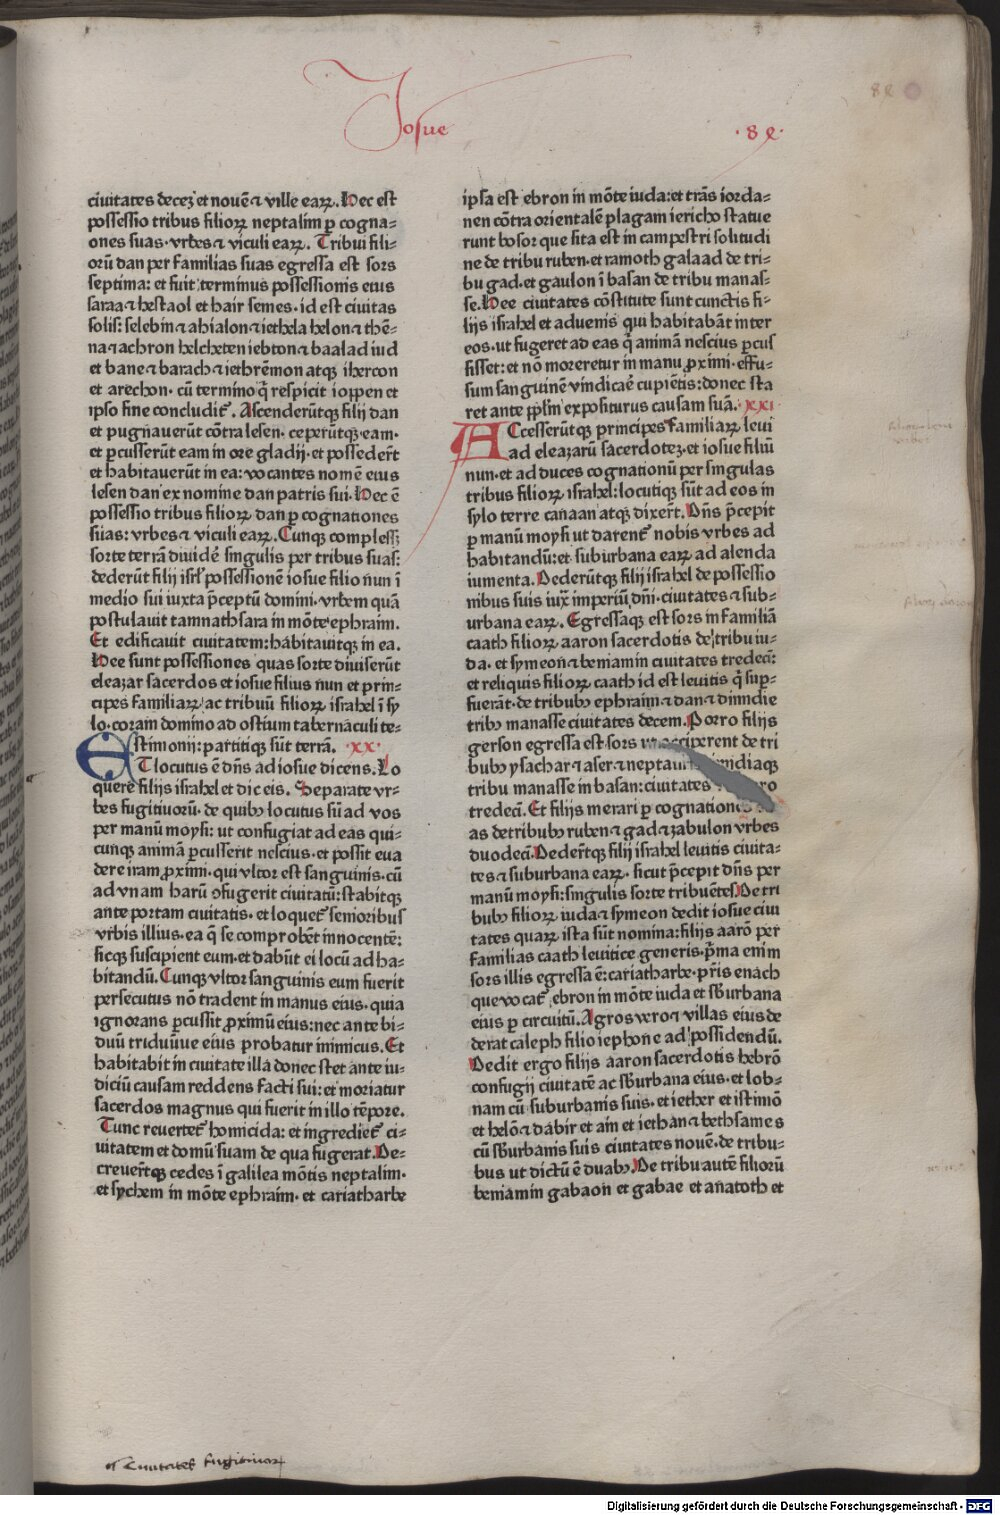 Josue
·8ꝛ·
ciuitates decez et nouē ⁊ ville eaꝝ. Hec est
possessio tribus filioꝝ neptalim ꝑ cogna=
ones suas· vrbes ⁊ viculi eaꝝ. Tribui fili=
orū dan per familias suas egressa est sors
septima: et fuit terminus possessionis eius
saraa ⁊ hestaol et hair semes· id est ciuitas
solis: selebin ⁊ ahialon ⁊ iethela helon ⁊ thē=
na ⁊ achron helcheten iebton ⁊ baalad iud
et bane ⁊ barach ⁊ iethrēmon atqꝫ ihercon
et arechon· cū termino q̄ respicit ioppen et
ipso fine concludit᷑. Ascenderūtqꝫ filij dan
et pugnauerūt cōtra lesen· ceperūtqꝫ eam·
et ꝑcusserūt eam in ore gladij· et possederūt
et habitauerūt in ea: vocantes nomē eius
lesen dan ex nomine dan patris sui. Hec ē
possessio tribus filioꝝ dan ꝑ cognationes
suas: vrbes ⁊ viculi eaꝝ. Cunqꝫ complessꝫ
sorte terrā diuidē singulis per tribus suas:
dederūt filij isrl' possessionē iosue filio nun ī
medio sui iuxta p̄ceptū domini· vrbem quā
postulauit tamnathsara in mōte ephraim.
Et edificauit ciuitatem: habitauitqꝫ in ea.
Hee sunt possessiones quas sorte diuiserūt
eleazar sacerdos et iosue filius nun et prin=
cipes familiaꝝ ac tribuū filioꝝ israhel ī sy
lo· coram domino ad ostium tabernaculi te=
stimonij: partitiqꝫ sūt terrā. ·xx·
ET locutus ē dn̄s ad iosue dicens. Lo
quere filijs israhel et dic eis. Separate vr=
bes fugitiuorū· de quibꝫ locutus sū ad vos
per manū moysi: ut confugiat ad eas qui=
cunqꝫ animā ꝑcusserit nescius· et possit eua
dere iram ꝓximi· qui vltor est sanguinis· cū
ad vnam harū ↄfugerit ciuitatū: stabitqꝫ
ante portam ciuitatis· et loquet᷑ senioribus
vrbis illius· ea q̄ se comprobēt innocentē:
sicqꝫ suscipient eum· et dabūt ei locū ad ha=
bitandū. Cunqꝫ vltor sanguinis eum fuerit
persecutus nō tradent in manus eius· quia
ignorans ꝑcussit ꝓximū eius: nec ante bi=
duū triduūue eius probatur inimicus. Et
habitabit in ciuitate illa donec stet ante iu=
diciū causam reddens facti sui: et moriatur
sacerdos magnus qui fuerit in illo tēpore.
Tunc reuertet᷑ homicida: et ingrediet᷑ ci=
uitatem et domū suam de qua fugerat. De=
creuerūtqꝫ cedes ī galilea mōtis neptalim·
et sychem in mōte ephraim· et cariatharbe
ipsa est ebron in mōte iuda: et trās iorda=
nen cōtra orientalē plagam iericho statue
runt bosor que sita est in campestri solitudi
ne de tribu ruben· et ramoth galaad de tri=
bu gad· et gaulon ī basan de tribu manas=
se. Hee ciuitates cōstitute sunt cunctis fi=
lijs israhel et aduenis qui habitabāt inter
eos· ut fugeret ad eas q̄ animā nescius ꝑcus
sisset: et nō moreretur in manu ꝓximi· effu=
sum sanguinē vindicare cupiētis: donec sta
ret ante ppl'm expositurus causam suā. ·xxi·
ACcesserūtqꝫ principes familiaꝝ leui
ad eleazarū sacerdotez· et iosue filiū
nun· et ad duces cognationū per singulas
tribus filioꝝ israhel: locutiqꝫ sūt ad eos in
sylo terre canaan atqꝫ dixerūt. Dn̄s p̄cepit
ꝑ manū moysi ut darent᷑ nobis vrbes ad
habitandū: et suburbana eaꝝ ad alenda
iumenta. Dederūtqꝫ filij israhel de possessio
nibus suis iux̄ imperiū dn̄i· ciuitates ⁊ sub=
urbana eaꝝ. Egressaqꝫ est sors in familiā
caath filioꝝ aaron sacerdotis de tribu iu=
da· et symeon ⁊ beniamin ciuitates tredecī:
et reliquis filioꝝ caath id est leuitis q̄ sup=
fuerāt· de tribubꝫ ephraim ⁊ dan ⁊ dimidie
tribꝫ manasse ciuitates decem. Porro filijs
gerson egressa est sors ut acciperent de tri
bubꝫ ysachar ⁊ aser ⁊ neptalim dimidiaqꝫ
tribu manasse in basan: ciuitates
tredecī. Et filijs merari ꝑ cognationes
as de tribubꝫ ruben ⁊ gad ⁊ zabulon vrbes
duodecī. Dederūtqꝫ filij israhel leuitis ciuita=
tes ⁊ suburbana eaꝝ· sicut p̄cepit dn̄s per
manū moysi: singulis sorte tribuētes. De tri
bubꝫ filioꝝ iuda ⁊ symeon dedit iosue ciui
tates quaꝝ ista sūt nomina: filijs aarō per
familias caath leuitice generis· p̄ma enim
sors illis egressa ē: cariatharbe· p̄ris enach
que vocat᷑ ebron in mōte iuda et sb̄urbana
eius ꝑ circuitū. Agros vero ⁊ villas eius de
derat caleph filio iephone ad possidendū.
Dedit ergo filijs aaron sacerdotis hebrō
confugij ciuitatē ac sb̄urbana eius· et lob=
nam cū suburbanis suis· et iether et istimō
et helō ⁊ dabir et ain et iethan ⁊ bethsames
cū sb̄urbanis suis ciuitates nouē· de tribu=
bus ut dictū ē duabꝫ. De tribu autē filiorū
beniamin gabaon et gabae et anatoth et
Ciuitates fugitiuoꝝ
Digitalisierung gefördert durch die Deutsche Forschungsgemeinschaft - DFG